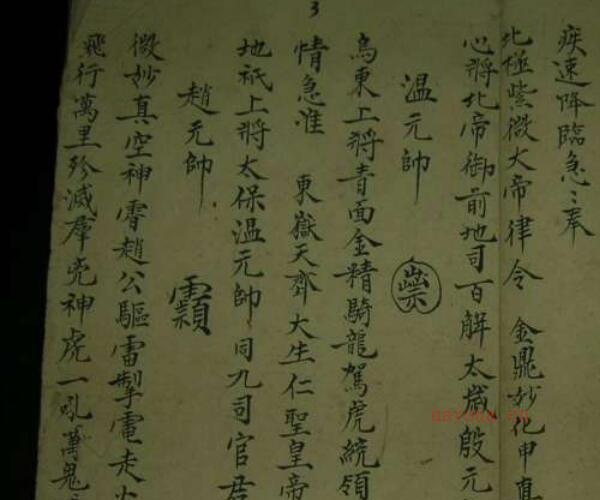 3
疾速降臨急〻奉
北極紫微大帝律令 金鼎妙化申真
心將北帝御前地司百解太歲殷元
溫元帥
烏東上將青面金精騎龍駕虎統領
情急准 東嶽天齊大生仁聖皇帝
地祇上將太保溫元帥同九司官君
趙元帥
微妙真空神霄趙公驅雷掣電走火
飛行萬里殄滅群兇神虎一吼萬鬼